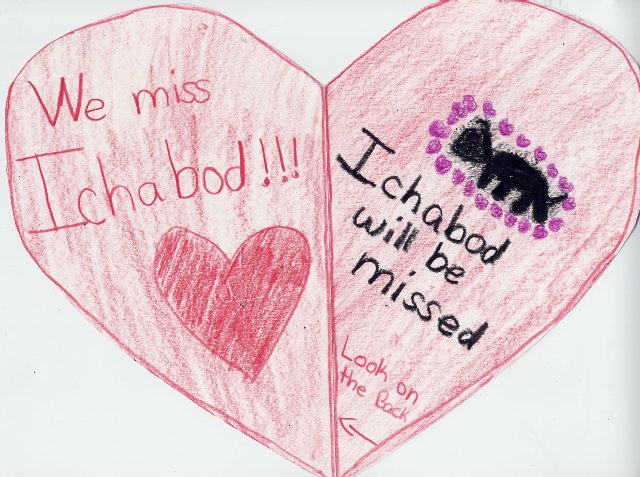 We miss
Ichabod!!!
Ichabod
will be
missed
Look on
the Back